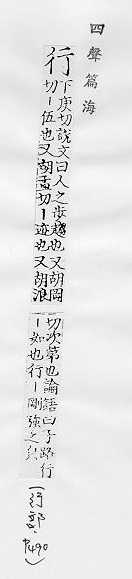 四聲篇海
行
下庚切說文曰人之步趨也又胡岡
切丨伍也又胡孟切丨迹也又胡浪
切次第也論語曰子路行
丨如也行丨剛強之皃
(行部. P490)